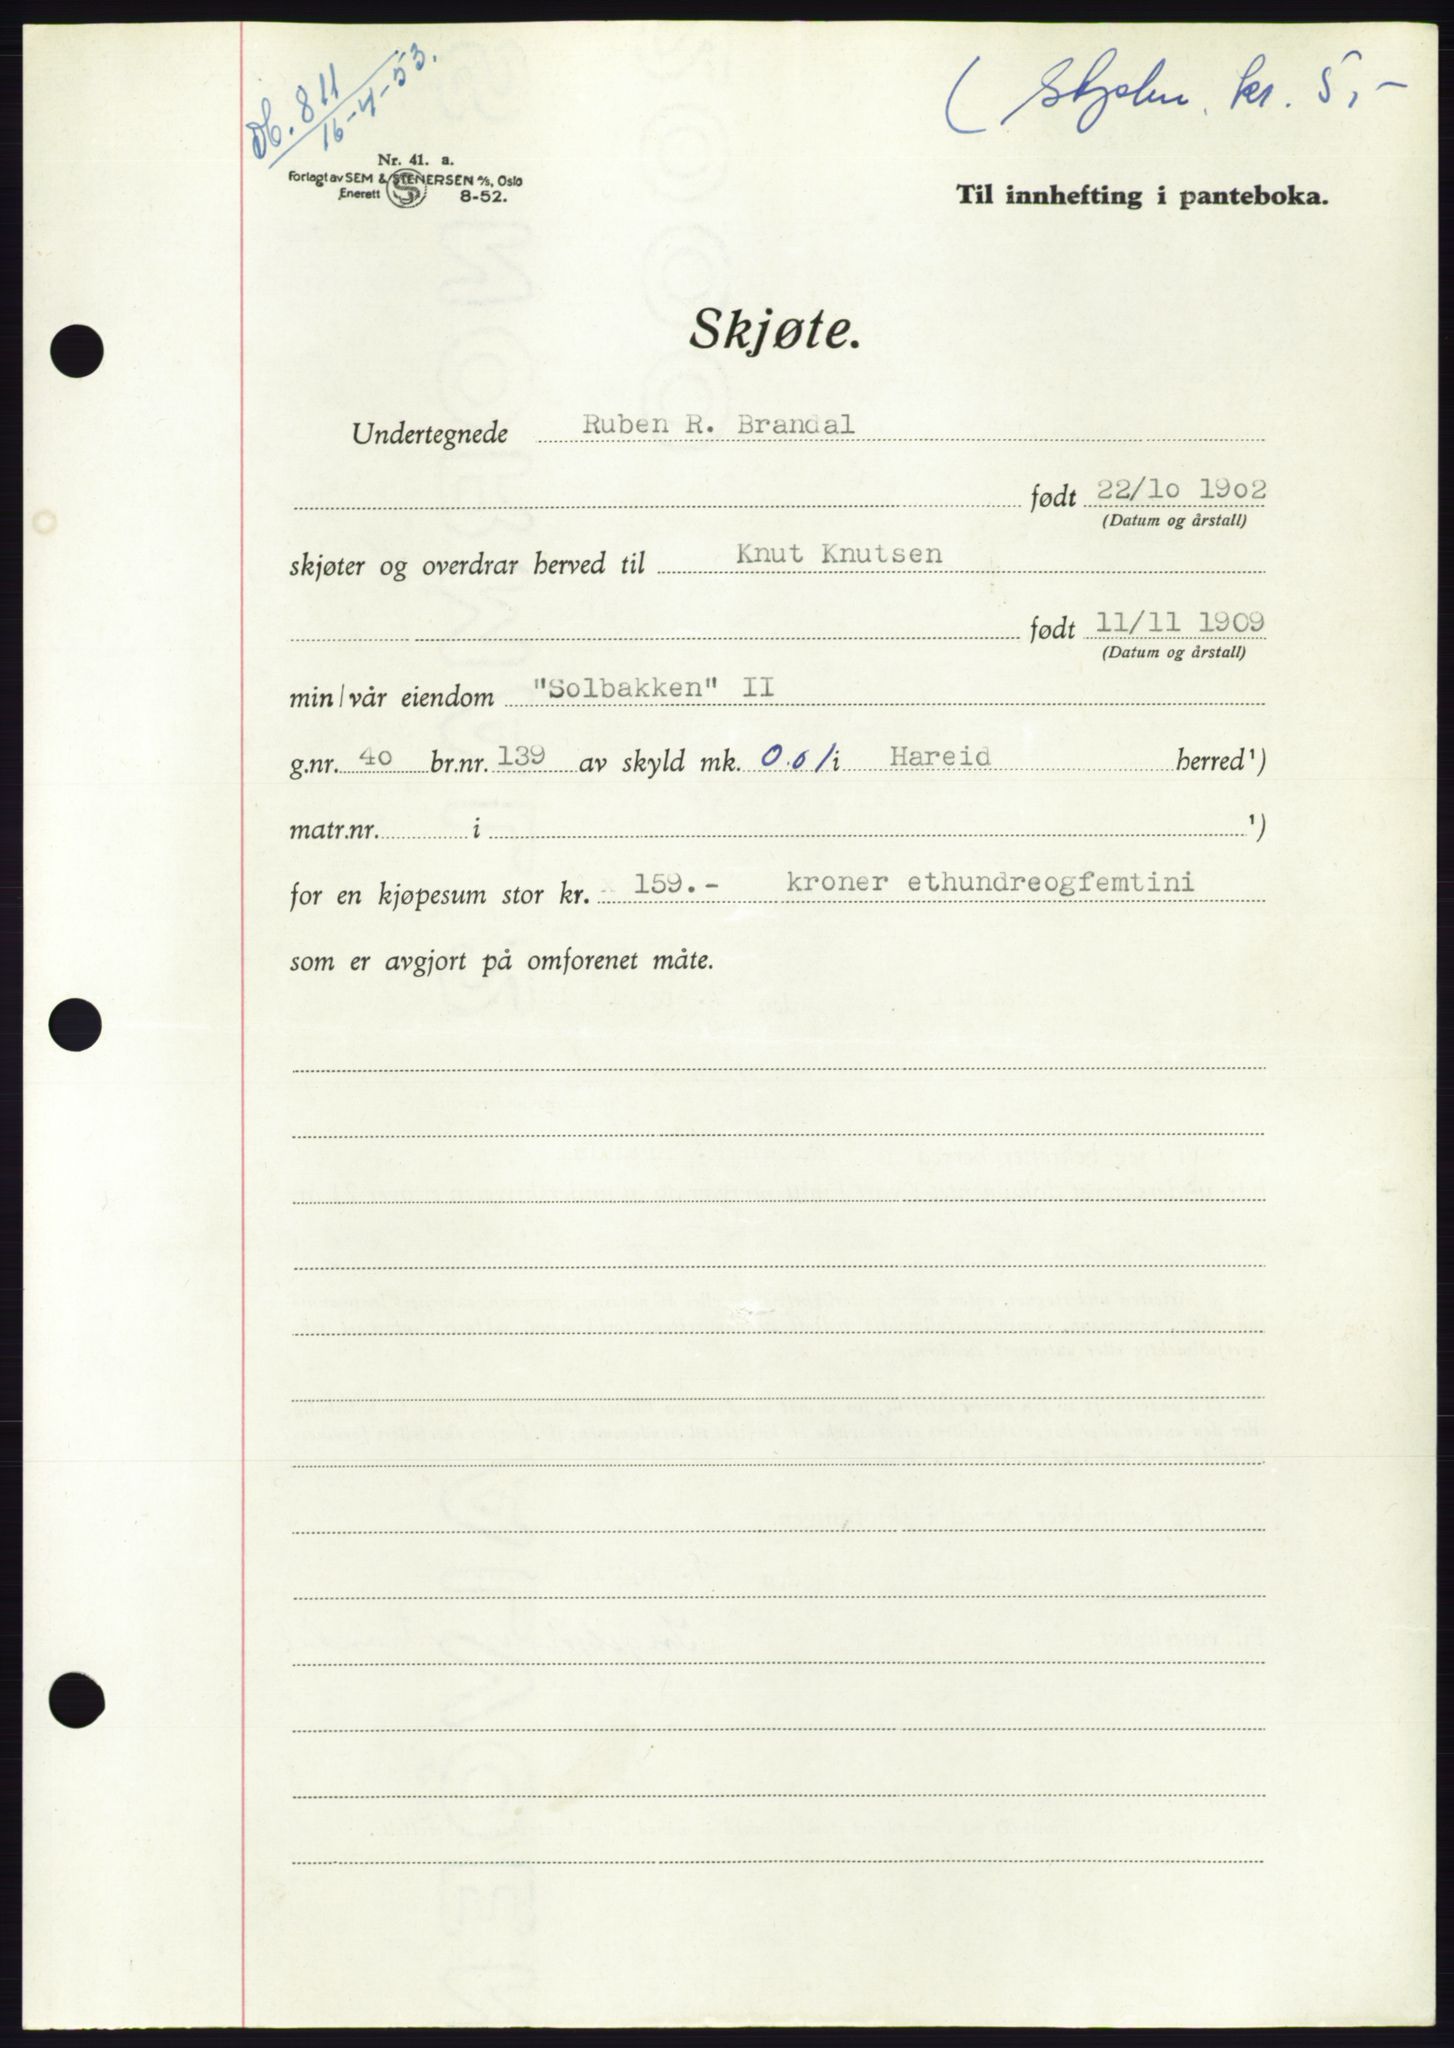 Db. 811
16-4-53.
kr. 5,-
Nr. 41. a.
Forlagt av SEM & STENERSEN A/S, Oslo
Enerett 8-52.
Til innhefting i panteboka.
Skjøte.
Undertegnede Ruben R. Brandal
født 22/10 1902
(Datum og årstall)
skjøter og overdrar herved til Knut Knutsen
født 11/11 1909
(Datum og årstall)
min/vår eiendom "Solbakken" II
g.nr. 40 br.nr. 139 av skyld mk. 0.01 i Hareid herred¹)
matr.nr. i ¹)
for en kjøpesum stor kr. 159.- kroner ethundreogfemtini
som er avgjort på omforenet måte.